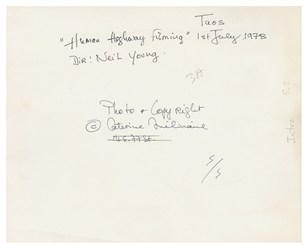 Taos
"Human Highway Filming" 1st July 1978
Dir: Neil Young.
3A
Photo + Copyright
© Caterine Milinaire
5/5
Intro